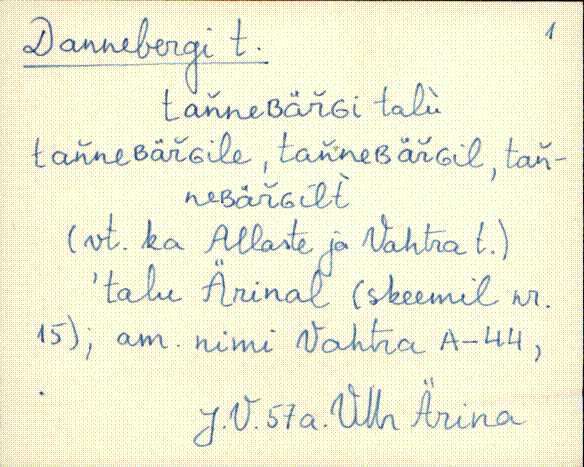 Dannebergi t. 1
tan̆neBär̆Gi talù
tan̆neBär̆Gile, tan̆neBär̆Gil, tan̆-
neBär̆Gilt̀
(vt. ka Allaste ja Vahtra t.)
'talu Ärinal (skeemil nr.
15); am. nimi Vahtra A-44,
J.V. 57a. Ärina